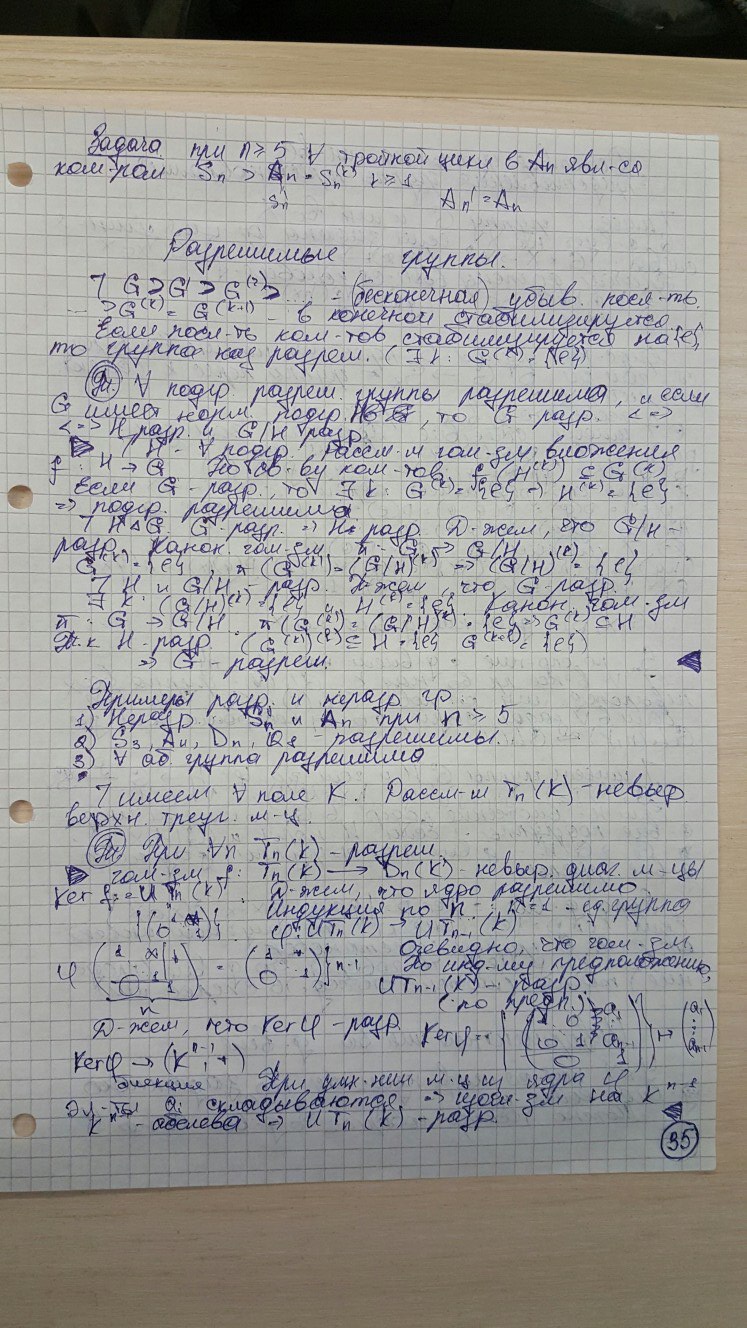 Задача при n ≥ 5 ∀ тройной цикл в Aₙ явл-ся
ком-ром Sₙ > Aₙ = Sₙ⁽ᵏ⁾ k ≥ 1
Sₙ' Aₙ' = Aₙ
Разрешимые группы.
] G > G' > G⁽²⁾ > ... - (бесконечная) убыв. посл-ть.
... > G⁽ᵏ⁾ = G⁽ᵏ⁺¹⁾ - в конечной стабилизируется
Если посл-ть ком-тов стабилизируется на {e},
то группа наз разреш. (∃ k : G⁽ᵏ⁾ = {e})
Тh. ∀ подгр. разреш. группы разрешима, и если
G имеет норм. подгр. , то G - разр. <=>
<=> H разр. и G/H разр.
] H - ∀ подгр. Рассм-м гом-зм вложения
f : H → G По св-ву ком-тов f(H⁽ᵏ⁾) ⊆ G⁽ᵏ⁾
Если G - разр., то ∃ k : G⁽ᵏ⁾ = {e} ⇒ H⁽ᵏ⁾ = {e}
⇒ подгр. разрешима
] H ⊲ G G - разр. ⇒ H - разр. Д-жем, что G/H -
разр. Канон. гом-зм π : G → G/H
G⁽ᵏ⁾ = {e}, π(G⁽ᵏ⁾) = (G/H)⁽ᵏ⁾ ⇒ (G/H)⁽ᵏ⁾ = {e}
] H и G/H - разр. Д-жем, что G - разр.
∃ k : (G/H)⁽ᵏ⁾ = {e} и H⁽ᵏ⁾ = {e} Канон. гом-зм
π : G → G/H π(G⁽ᵏ⁾) = (G/H)⁽ᵏ⁾ = {e} ⇒ G⁽ᵏ⁾ ⊆ H
Т.к H - разр. (G⁽ᵏ⁾)⁽ˡ⁾ ⊆ H = {e} G⁽ᵏ⁺ˡ⁾ = {e}
⇒ G - разреш.
Примеры разр. и неразр гр.
1) Неразр. : Sₙ и Aₙ при n ≥ 5
2) S₃, A₄, Dₙ, Q₈ - разрешимы.
3) ∀ аб группа разрешима
] имеем ∀ поле K. Рассм-м Tₙ(K) - невыр.
верхн. треуг. м-ц.
Тh. При ∀n Tₙ(K) - разреш.
гом-зм f : Tₙ(K) → Dₙ(K) - невыр. диаг. м-цы
Ker f = UTₙ(K) Д-жем, что ядро разрешимо
{(1 * 0 1)} Индукция по n : n=1 - ед. группа
φ : UTₙ(K) → UTₙ₋₁(K)
Очевидно, что гом-зм.
φ (1 * 0 1) = (1 * 0 1)} n-1 По инд-му предположению,
n UTₙ₋₁(K) - разр.
(по предп.)
Д-жем, что Ker φ - разр. Ker φ = {(1 0 a₁ 0 1 aₙ₋₁ 0 1)} ↦ (a₁ ... aₙ₋₁)
Ker φ → (Kⁿ⁻¹, +)
биекция При умн-нии м-ц из ядра φ
эл-ты aᵢ складываются, ⇒ изом-зм на Kⁿ⁻¹
Kⁿ⁻¹ - абелева ⇒ UTₙ(K) - разр.
35